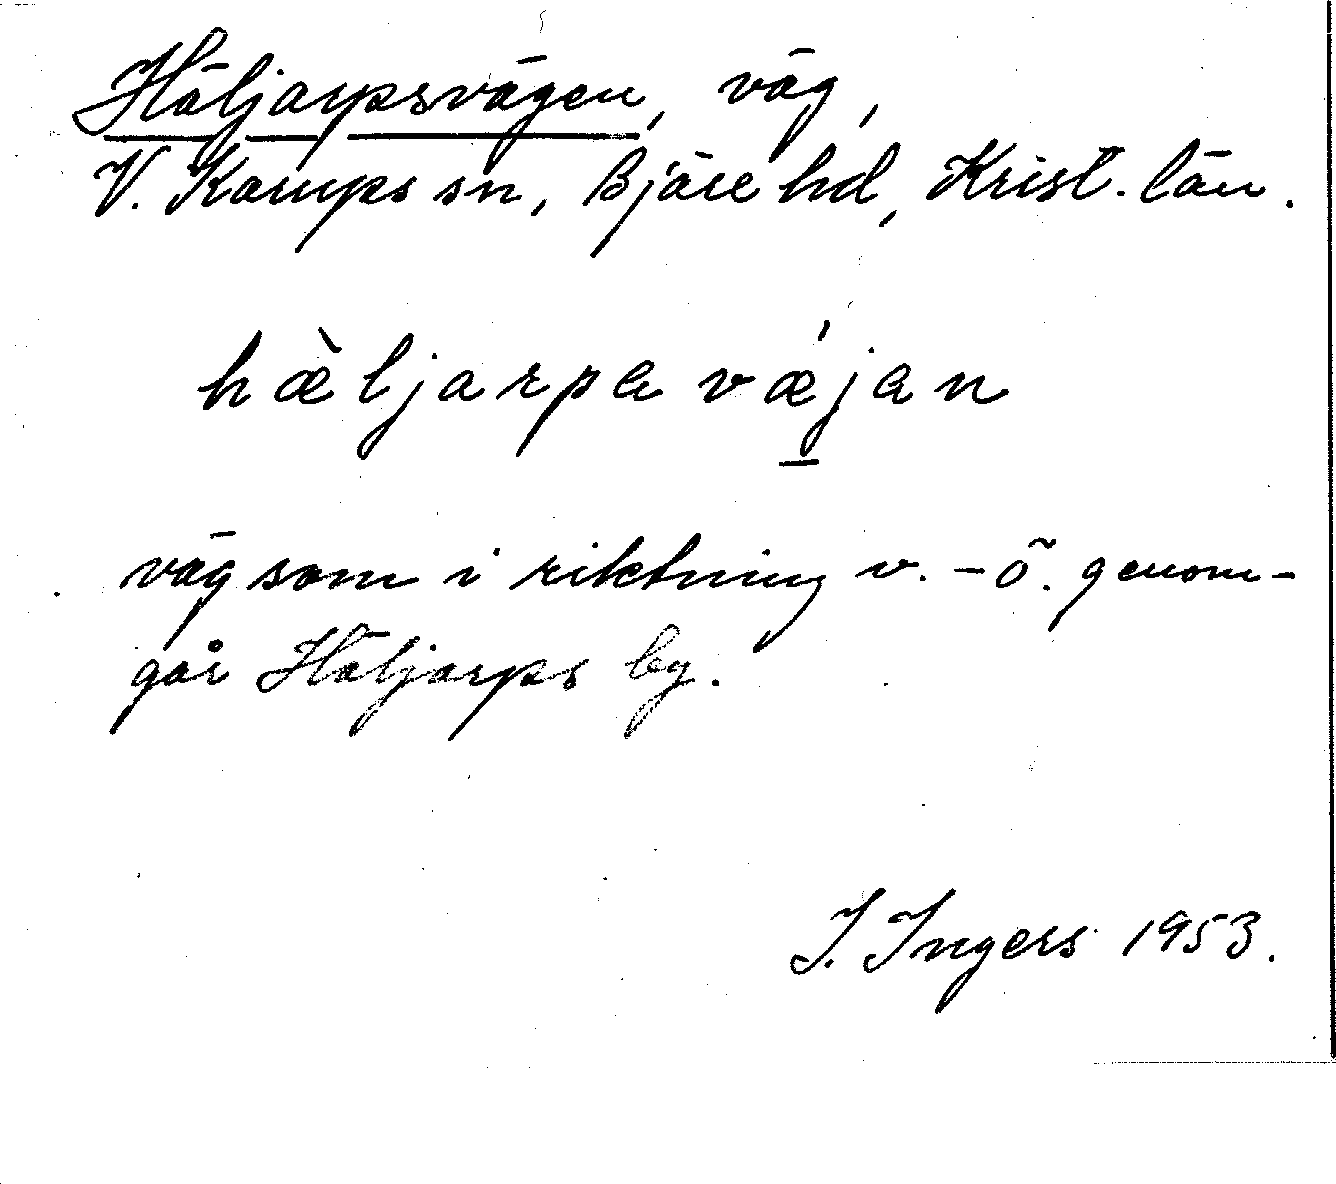 Häljarpsvägen, väg,
V. Karups sn, Bjäre hd, Krist. län.
hæ̀ljarpa vǽ̠jan
väg som i riktning v. - ö. genom-
går Häljarps by.
I. Ingers 1953.